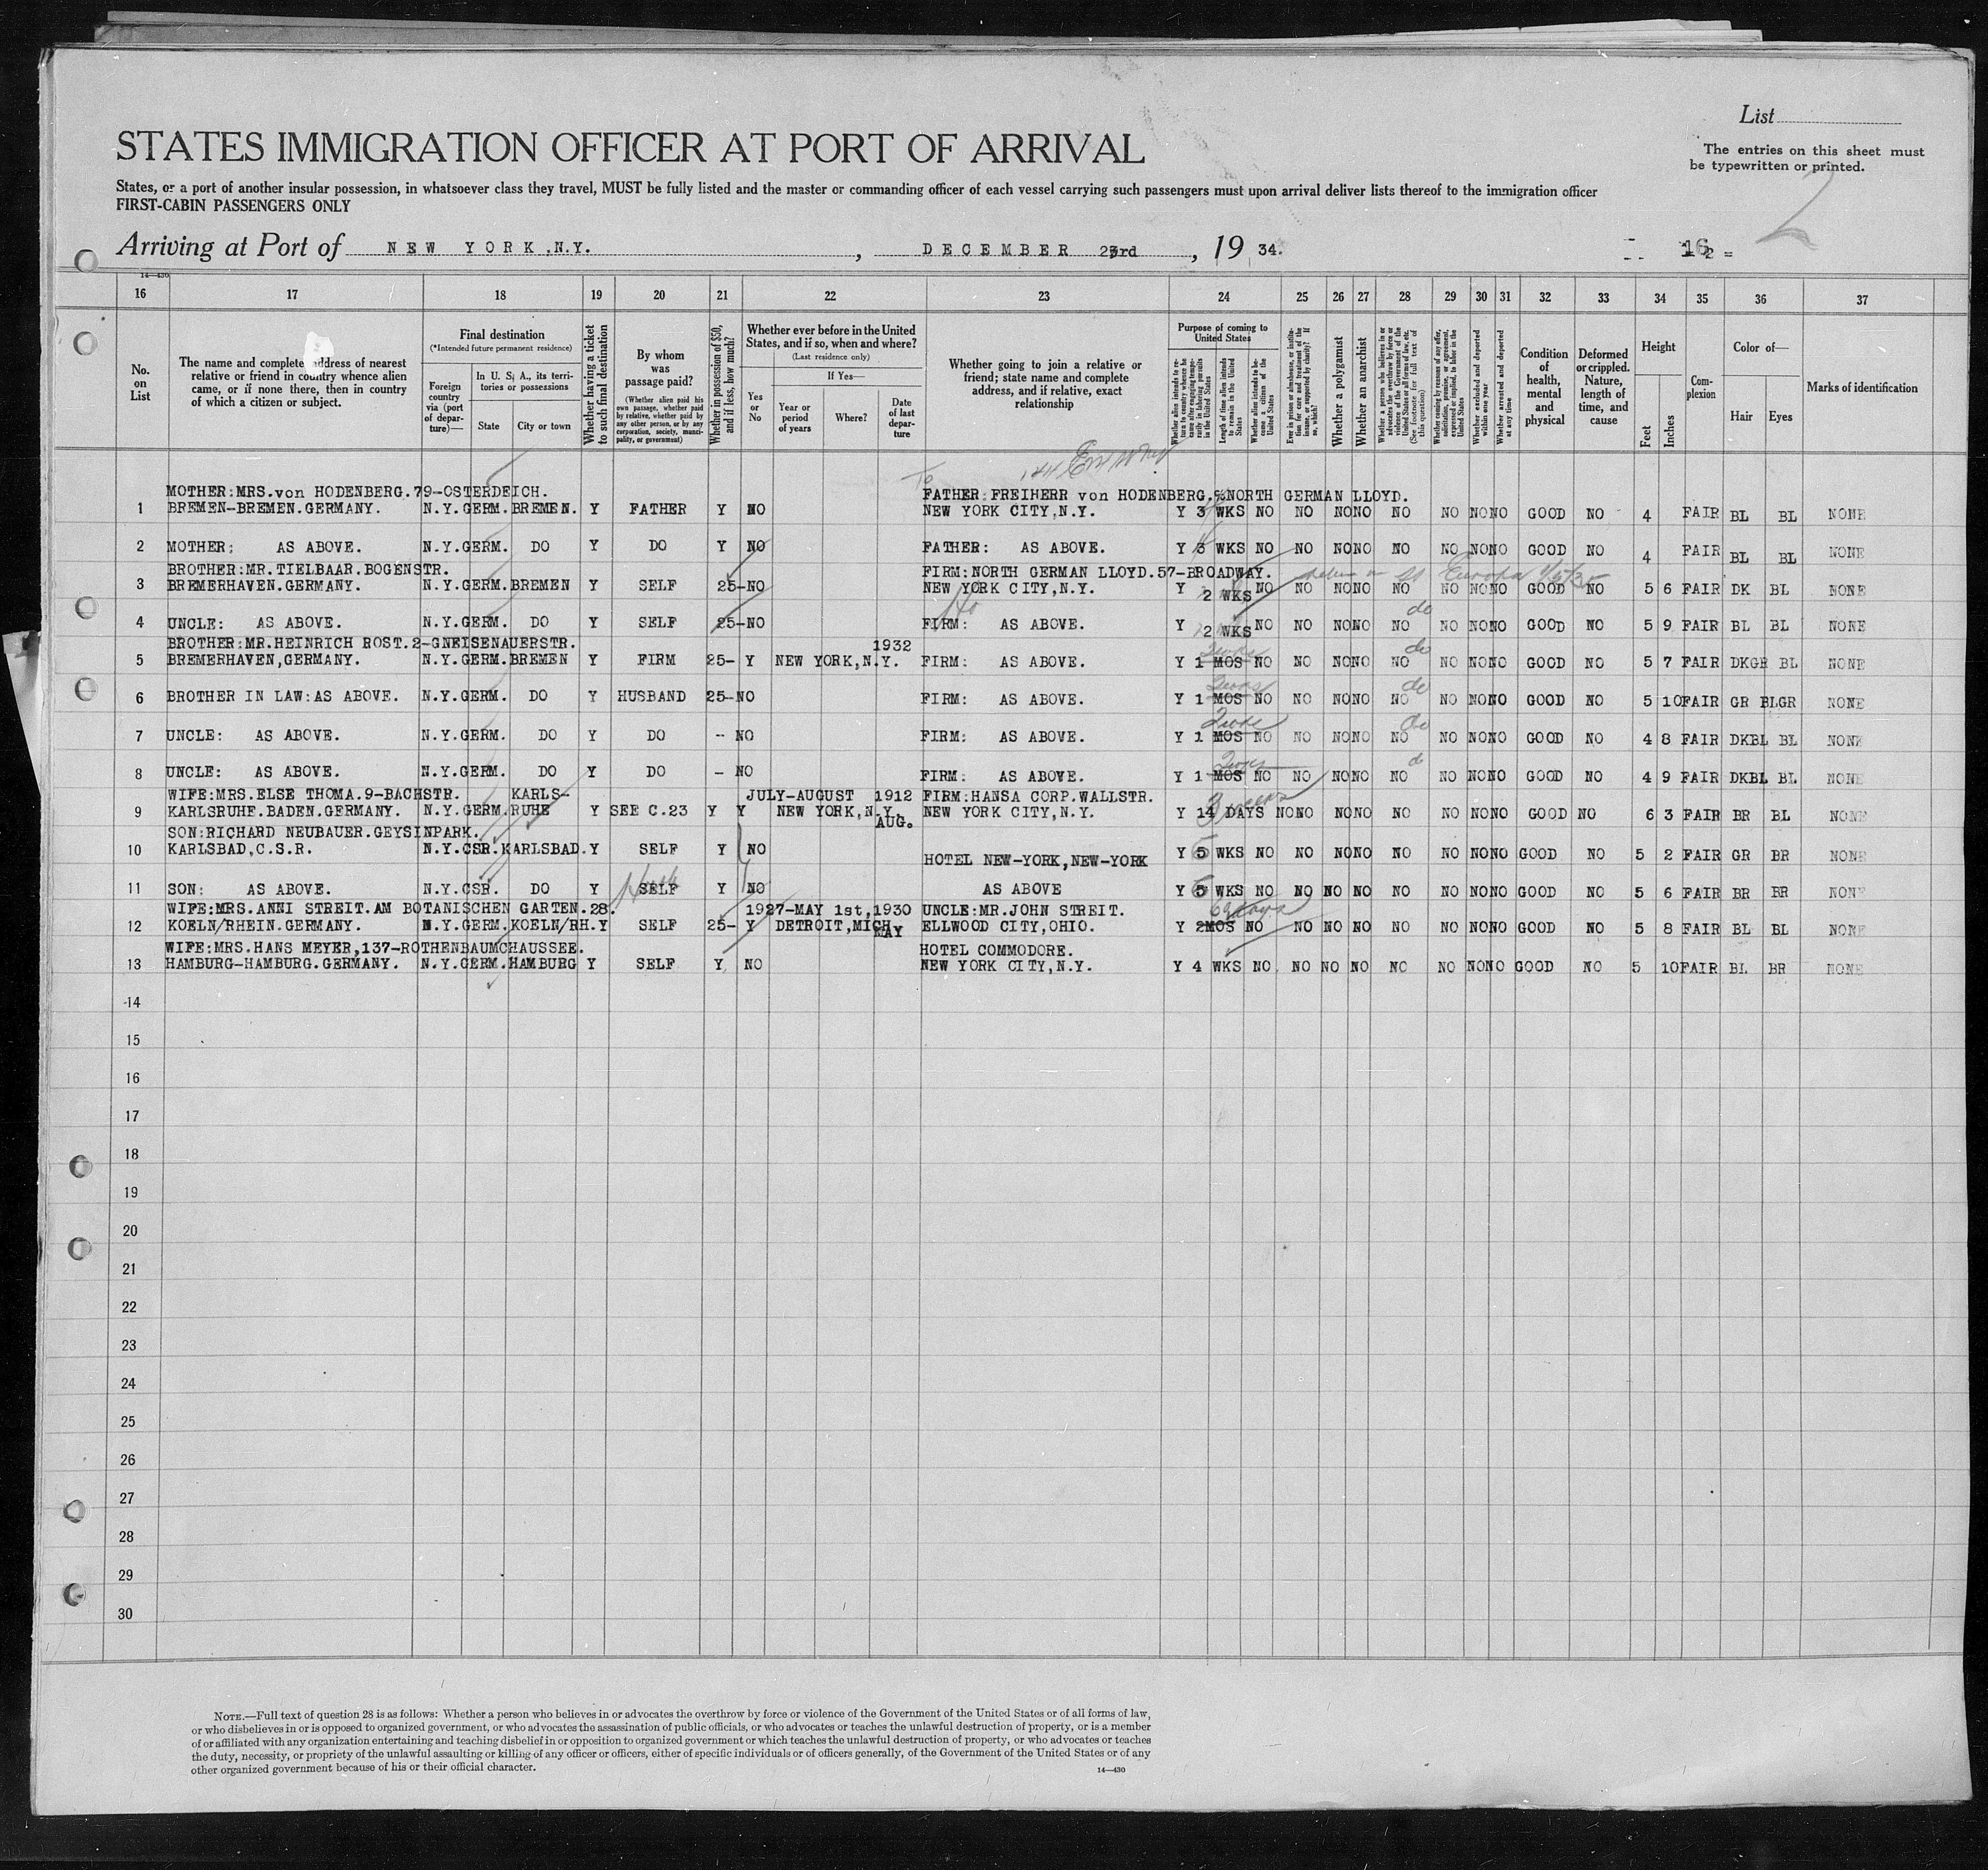 List
STATES IMMIGRATION OFFICER AT PORT OF ARRIVAL
The entries on this sheet must
be typewritten or printed.
States, or a port of another insular possession, in whatsoever class they travel, MUST be fully listed and the master or commanding officer of each vessel carrying such passengers must upon arrival deliver lists thereof to the immigration officer
FIRST-CABIN PASSENGERS ONLY
2
Arriving at Port of NEW YORK, N.Y., DECEMBER 23rd, 1934.
14—430
16 17 18 19 20 21 22 23 24 25 26 27 28 29 30 31 32 33 34 35 36 37
No. on List
The name and complete address of nearest relative or friend in country whence alien came, or if none there, then in country of which a citizen or subject.
Final destination
(*Intended future permanent residence)
Foreign country via (port of departure)—
In U. S. A., its territories or possessions
State
City or town
Whether having a ticket to such final destination
By whom was passage paid?
(Whether alien paid his own passage, whether paid by relative, whether paid by any other person, or by any corporation, society, municipality, or government)
Whether in possession of $50, and if less, how much?
Whether ever before in the United States, and if so, when and where?
(Last residence only)
Yes or No
If Yes—
Year or period of years
Where?
Date of last departure
Whether going to join a relative or friend; state name and complete address, and if relative, exact relationship
Purpose of coming to United States
Whether alien intends to return to country whence he came after engaging temporarily in laboring pursuits in the United States
Length of time alien intends to remain in the United States
Whether alien intends to become a citizen of the United States
Ever in prison or almshouse, or institution for care and treatment of the insane, or supported by charity? If so, which?
Whether a polygamist
Whether an anarchist
Whether a person who believes in or advocates the overthrow by force or violence of the Government of the United States or all forms of law, etc. (See footnote for full text of this question)
Whether coming by reasons of any offer, solicitation, promise, or agreement, expressed or implied, to labor in the United States
Whether excluded and deported within one year
Whether arrested and deported at any time
Condition of health, mental and physical
Deformed or crippled. Nature, length of time, and cause
Height
Feet
Inches
Complexion
Color of—
Hair
Eyes
Marks of identification
MOTHER:MRS.von HODENBERG.79-OSTERDEICH. FATHER:FREIHERR von HODENBERG.%NORTH GERMAN LLOYD.
1 BREMEN-BREMEN.GERMANY. N.Y.GERM.BREMEN. Y FATHER Y NO NEW YORK CITY,N.Y. Y 3 WKS NO NO NO NO NO NO NO NO GOOD NO 4 FAIR BL BL NONE
2 MOTHER: AS ABOVE. N.Y.GERM. DO Y DO Y NO FATHER: AS ABOVE. Y 3 WKS NO NO NO NO NO NO NO NO GOOD NO 4 FAIR BL BL NONE
BROTHER:MR.TIELBAAR.BOGENSTR. FIRM:NORTH GERMAN LLOYD.57-BROADWAY.
3 BREMERHAVEN.GERMANY. N.Y.GERM.BREMEN Y SELF 25-NO NEW YORK CITY,N.Y. Y 2 WKS NO NO NO NO NO NO NO NO GOOD NO 5 6 FAIR DK BL NONE
4 UNCLE: AS ABOVE. N.Y.GERM. DO Y SELF 25-NO FIRM: AS ABOVE. Y 2 WKS NO NO NO NO NO NO NO NO GOOD NO 5 9 FAIR BL BL NONE
BROTHER:MR.HEINRICH ROST.2-GNEISENAUERSTR. 1932
5 BREMERHAVEN,GERMANY. N.Y.GERM.BREMEN Y FIRM 25- Y NEW YORK,N.Y. FIRM: AS ABOVE. Y 1 MOS NO NO NO NO NO NO NO NO GOOD NO 5 7 FAIR DKGR BL NONE
6 BROTHER IN LAW:AS ABOVE. N.Y.GERM. DO Y HUSBAND 25-NO FIRM: AS ABOVE. Y 1 MOS NO NO NO NO NO NO NO NO GOOD NO 5 10FAIR GR BLGR NONE
7 UNCLE: AS ABOVE. N.Y.GERM. DO Y DO -- NO FIRM: AS ABOVE. Y 1 MOS NO NO NO NO NO NO NO NO GOOD NO 4 8 FAIR DKBL BL NONE
8 UNCLE: AS ABOVE. N.Y.GERM. DO Y DO - NO FIRM: AS ABOVE. Y 1 MOS NO NO NO NO NO NO NO NO GOOD NO 4 9 FAIR DKBL BL NONE
WIFE:MRS.ELSE THOMA.9-BACHSTR. KARLS- JULY-AUGUST 1912 FIRM:HANSA CORP.WALLSTR. 3 weeks
9 KARLSRUHE.BADEN.GERMANY. N.Y.GERM.RUHE Y SEE C.23 Y Y NEW YORK,N.Y. AUG. NEW YORK CITY,N.Y. Y 14 DAYS NO NO NO NO NO NO NO NO GOOD NO 6 3 FAIR BR BL NONE
SON:RICHARD NEUBAUER.GEYSINPARK.
10 KARLSBAD,C.S.R. N.Y.CSR.KARLSBAD.Y SELF Y NO HOTEL NEW-YORK,NEW-YORK Y 5 WKS NO NO NO NO NO NO NO NO GOOD NO 5 2 FAIR GR BR NONE
11 SON: AS ABOVE. N.Y.CSR. DO Y SELF Y NO AS ABOVE Y 5 WKS NO NO NO NO NO NO NO NO GOOD NO 5 6 FAIR BR BR NONE
WIFE:MRS.ANNI STREIT.AM BOTANISCHEN GARTEN.28. 1927-MAY 1st,1930 UNCLE:MR.JOHN STREIT.
12 KOELN/RHEIN.GERMANY. N.Y.GERM.KOELN/RH.Y SELF 25- Y DETROIT,MICH MAY ELLWOOD CITY,OHIO. Y 2MOS NO NO NO NO NO NO NO NO GOOD NO 5 8 FAIR BL BL NONE
WIFE:MRS.HANS MEYER,137-ROTHENBAUMCHAUSSEE. HOTEL COMMODORE.
13 HAMBURG-HAMBURG.GERMANY. N.Y.GERM.HAMBURG Y SELF Y NO NEW YORK CITY,N.Y. Y 4 WKS NO NO NO NO NO NO NO NO GOOD NO 5 10FAIR BL BR NONE
14
15
16
17
18
19
20
21
22
23
24
25
26
27
28
29
30
NOTE.—Full text of question 28 is as follows: Whether a person who believes in or advocates the overthrow by force or violence of the Government of the United States or of all forms of law,
or who disbelieves in or is opposed to organized government, or who advocates the assassination of public officials, or who advocates or teaches the unlawful destruction of property, or is a member
of or affiliated with any organization entertaining and teaching disbelief in or opposition to organized government or which teaches the unlawful destruction of property, or who advocates or teaches
the duty, necessity, or propriety of the unlawful assaulting or killing of any officer or officers, either of specific individuals or of officers generally, of the Government of the United States or of any
other organized government because of his or their official character.
14—430